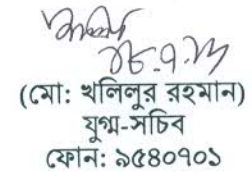 (মো: খলিলুর রহমান)
যুগ্ম-সচিব
ফোন: ৯৫৪০৭০১